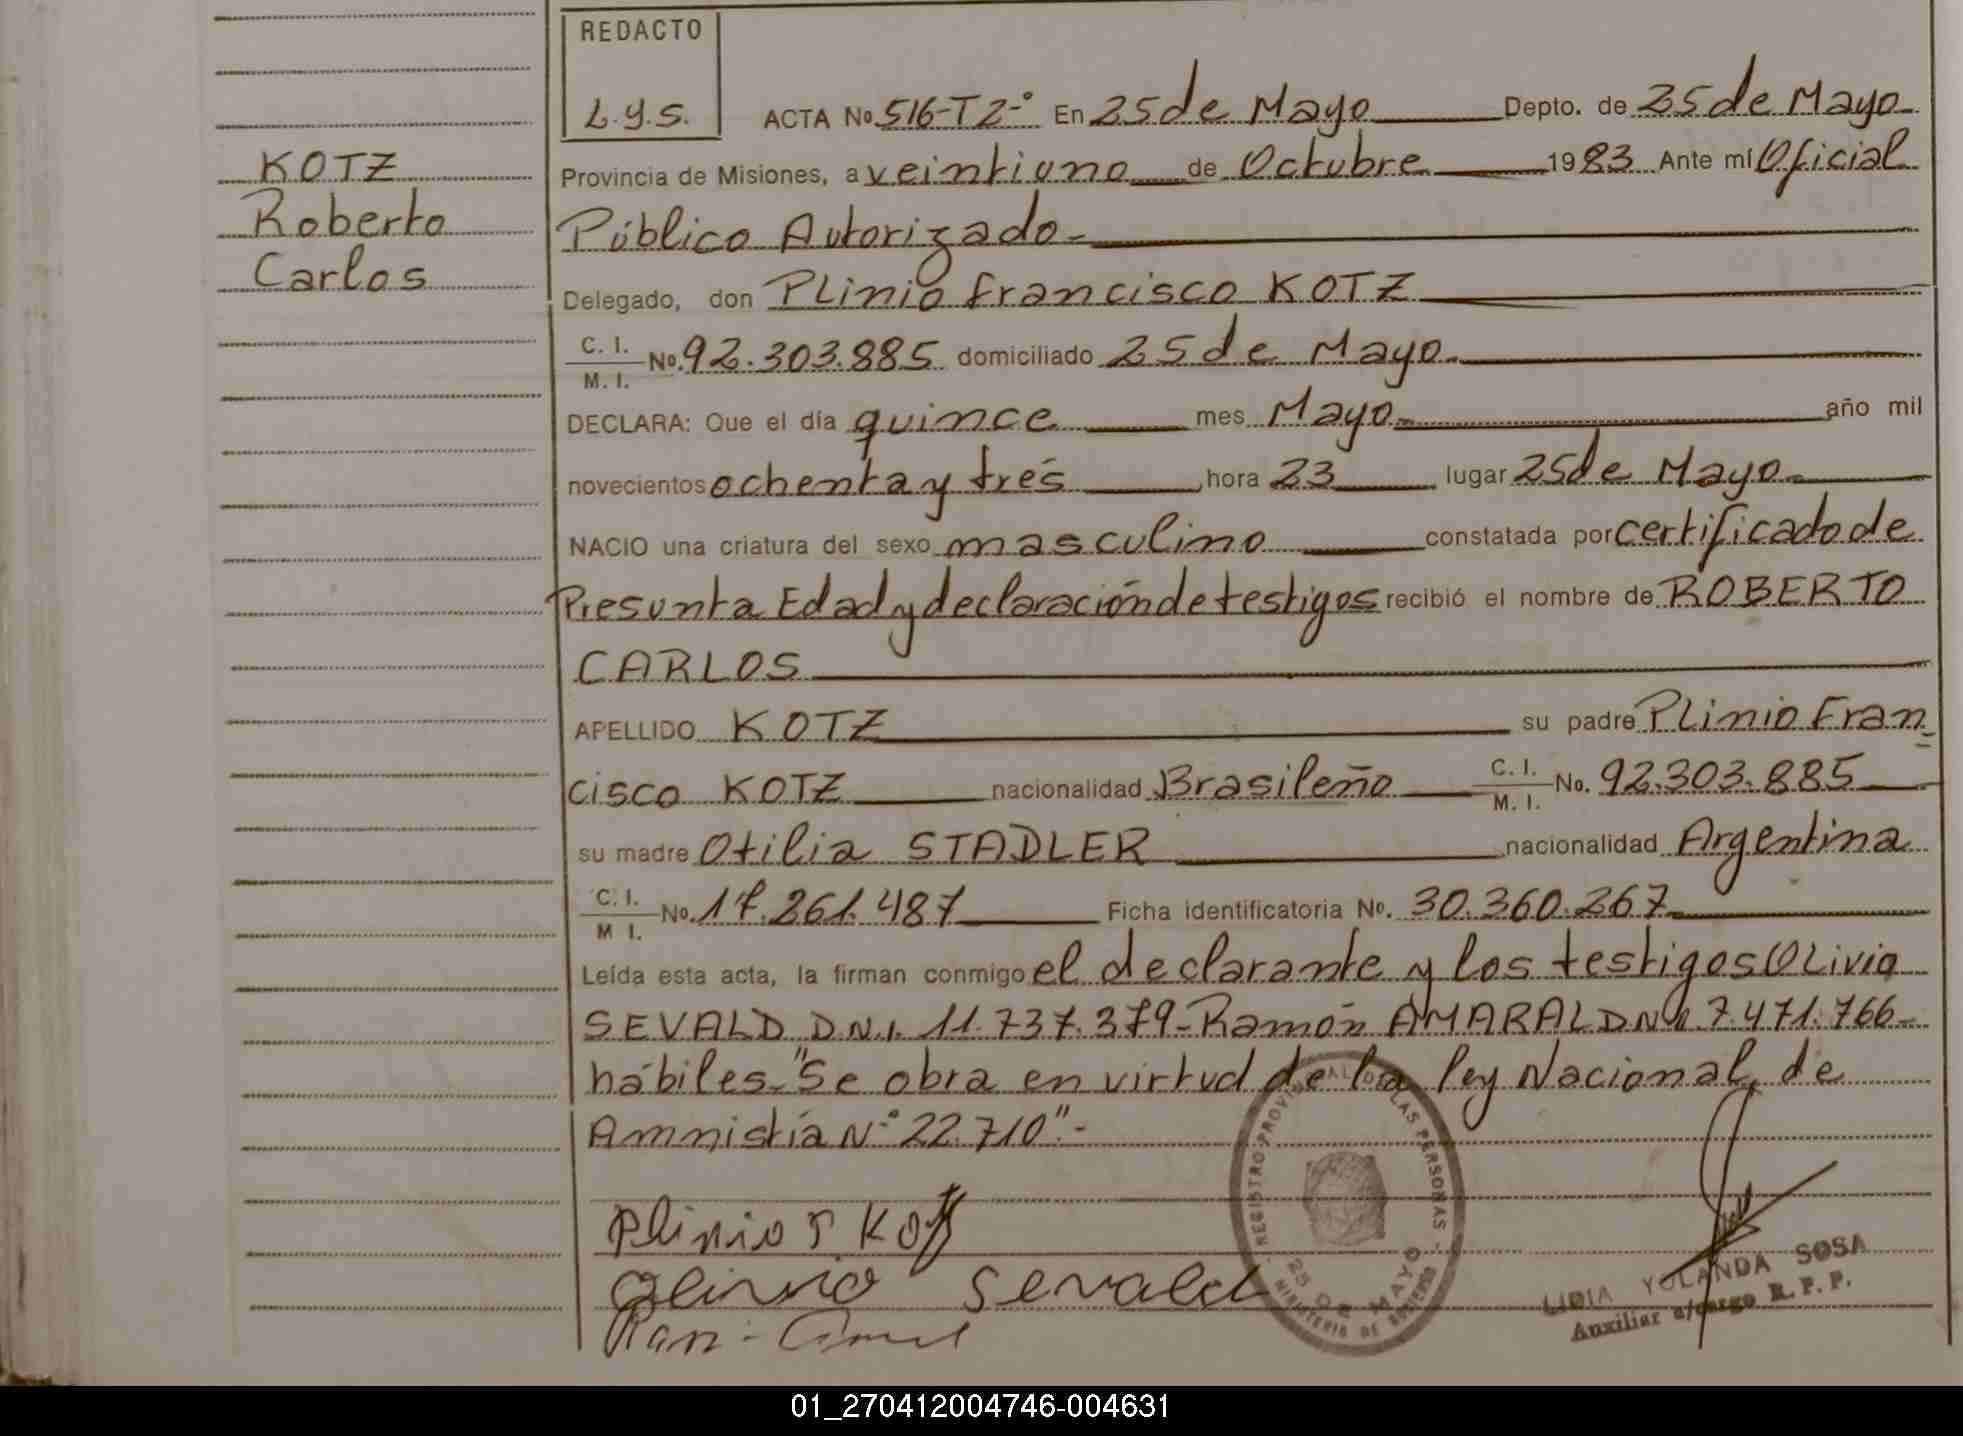 REDACTO
L.y.S.
KOTZ
Roberto
Carlos
ACTA No 516-T2-° En 25 de Mayo Depto. de 25 de Mayo
Provincia de Misiones, a veintiuno de Octubre 1983 Ante mí Oficial
Público Autorizado-
Delegado, don PLinio francisco KOTZ
C. I. / M. I. No. 92.303.885 domiciliado 25 de Mayo
DECLARA: Que el día quince mes Mayo año mil
novecientos ochenta y trés hora 23 lugar 25 de Mayo
NACIO una criatura del sexo masculino constatada por certificado de
Presunta Edad y declaración de testigos recibió el nombre de ROBERTO
CARLOS
APELLIDO KOTZ su padre PLinio Fran=
cisco KOTZ nacionalidad Brasileño C. I. / M. I. No. 92.303.885
su madre Otilia STADLER nacionalidad Argentina
C. I. / M I. No. 17.261.487 Ficha identificatoria No. 30.360.267
Leída esta acta, la firman conmigo el declarante y los testigos OLivio
SEVALD D.N.I. 11.737.379-Ramón AMARAL DNI. 7.471.766-
hábiles-"Se obra en virtud de la ley Nacional de
Amnistía N°22.710"-
Plinio F. Kotz
Olivio Sevald
REGISTRO PROVINCIAL DE LAS PERSONAS
25 DE MAYO
MINISTERIO DE GOBIERNO
LIDIA YOLANDA SOSA
Auxiliar a/cargo R. P. P.
01_270412004746-004631